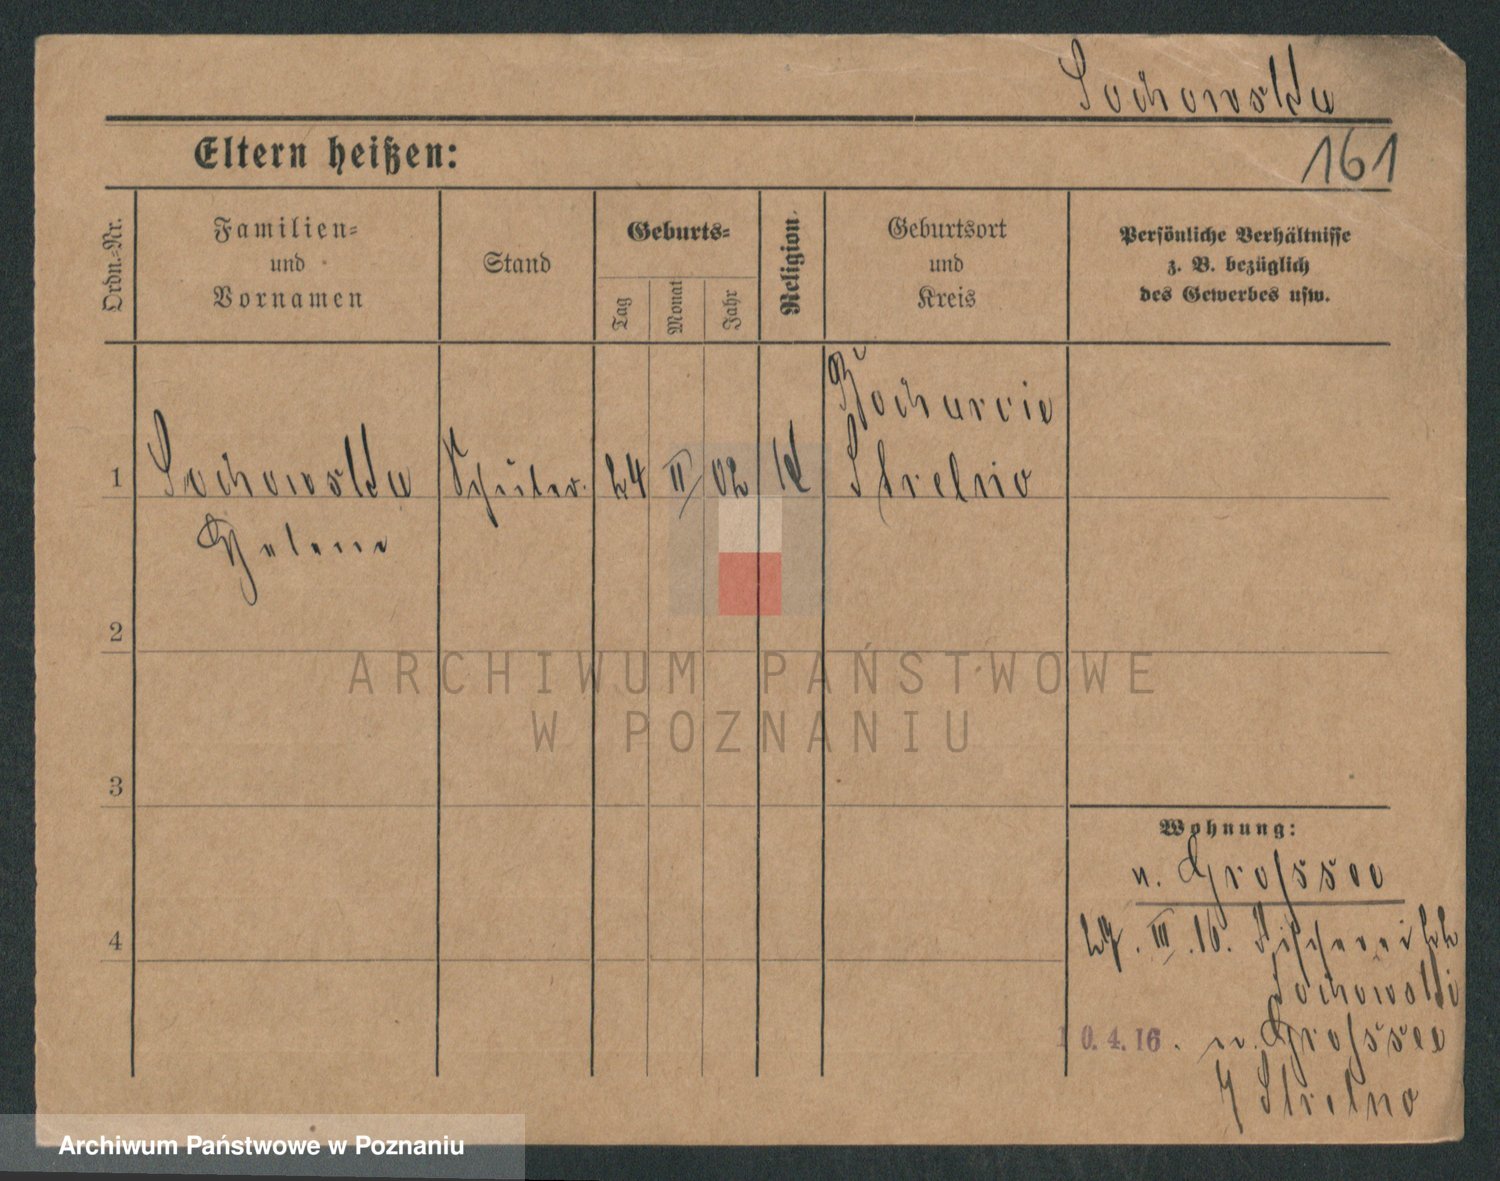 Sochowska
161
Eltern heißen:
Ordn.-Nr.
Familien-
und
Vornamen
Stand
Geburts-
Tag
Monat
Jahr
Religion.
Geburtsort
und
Kreis
Persönliche Verhältnisse
z. B. bezüglich
des Gewerbes usw.
1
Sochowska
Helene
Schüler.
24
II
02
k
Strelno
2
3
4
Wohnung:
n. Grossee
27. III. 16.
Sochowski
10.4.16. n. Grossee
Strelno
ARCHIWUM PAŃSTWOWE
W POZNANIU
Archiwum Państwowe w Poznaniu